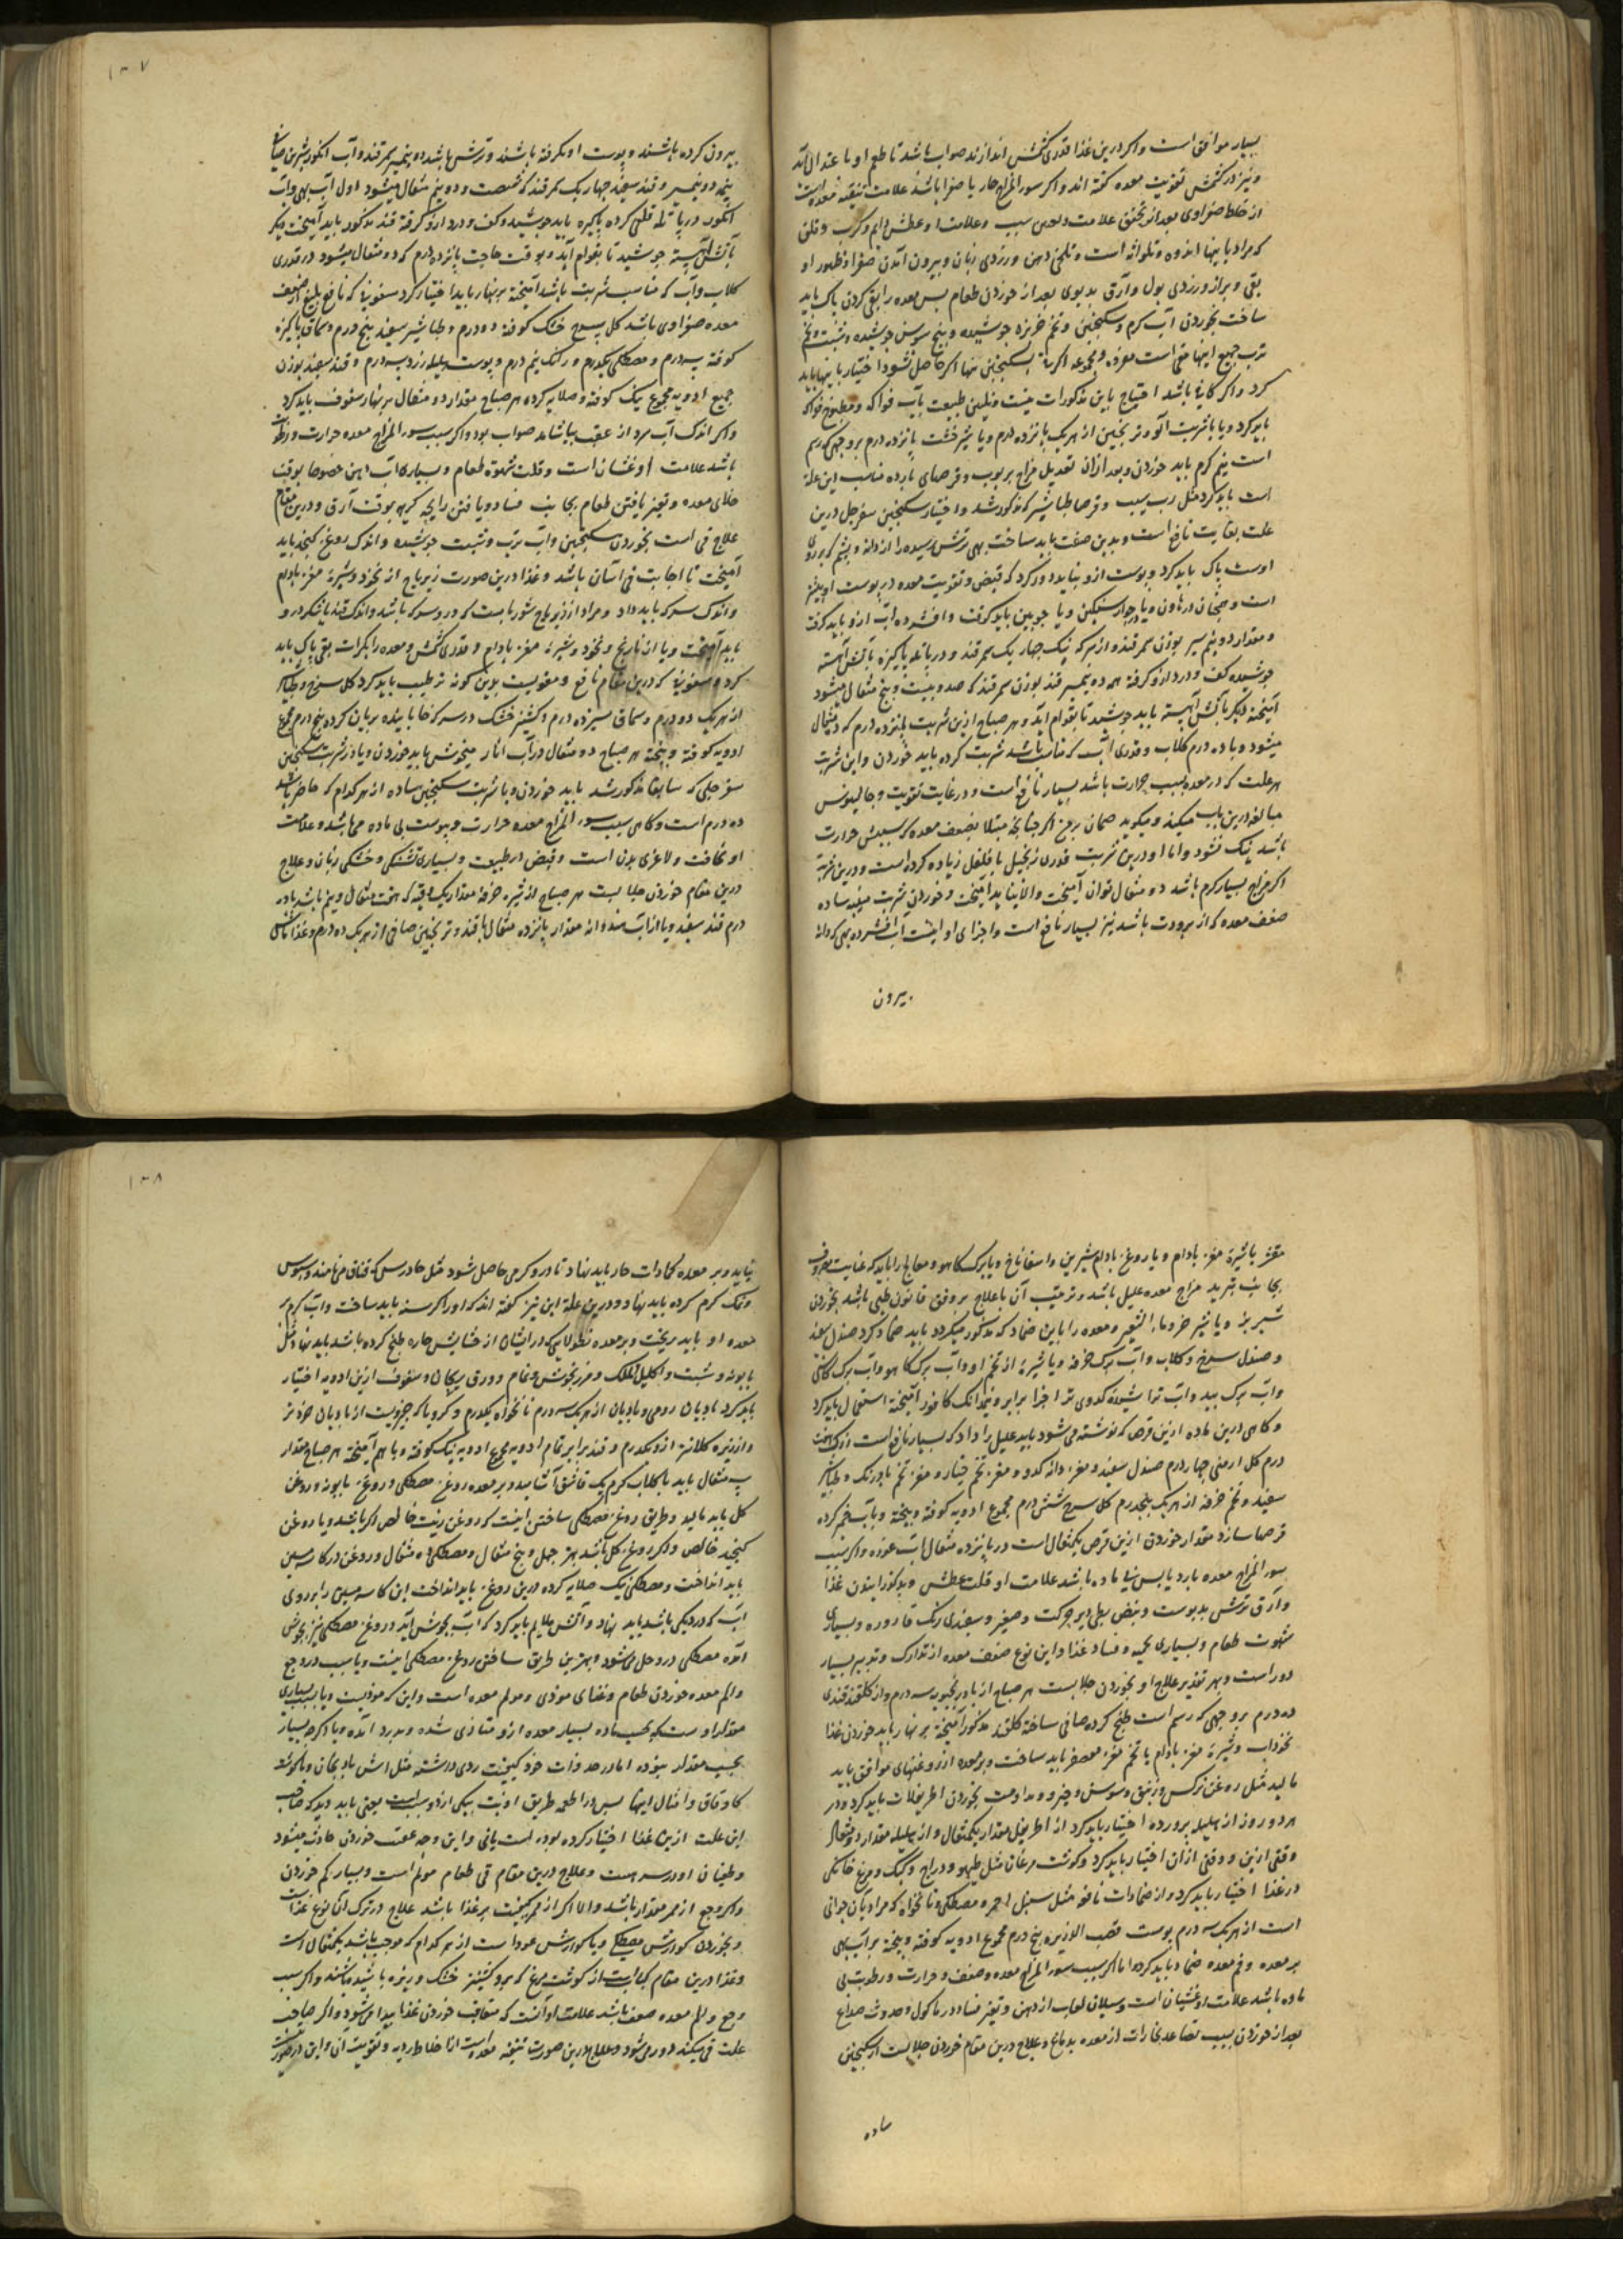 بسیار موافق است و اگر درین غذا قدری کشمش اندازند صواب باشد تا طعم او باعتدال آید
و نیز در کشمش تقویت معده گفته اند و اگر سوء المزاج حار یا صفرا باشد علامت تنقیه معده است
از خلط صفراوی بعد از تحقق علامت و سبب و علامت او عطش دایم و کرب و قلق
که مراد باینها اندوه و تلواثه است و تلخی دهن و زردی زبان و بیرون آمدن صفرا و ظهور او
بقی و براز و زردی بول و آرق بدبوی بعد از خوردن طعام پس معده را بقی کردن پاک باید
ساخت بخوردن آب گرم و سکنجبین و تخم خربزه جوشیده و بیخ سوسن جوشیده و شبت و تخم
ترب جمیع اینها مقی است معرفه و مجموعه اگر با سکنجبین تنها اگر حاصل نشود اختیار باینها باید
کرد و اگر کافی باشد احتیاج باین مذکورات نیست و تلیین طبیعت بآب فواکه و مطبوخ فواکه
باید کرد و یا باشربت آلو و ترنجبین از هر یک پانزده درم و یا شیرخشت پانزده درم بر وجهی که رسم
است نیم گرم باید خوردن و بعد ازان تعدیل مزاج بربوب و قرصهای بارده مناسب این علة
است باید کرد مثل رب سیب و قرص طباشیر که مذکور شد و اختیار سکنجبین سفرجل درین
علت بغایت نافع است و بدین صفت باید ساخت بهی ترش رسیده را از دانه و پشم که بر روی
اوست پاک باید کرد و پوست ازو نباید دور کرد که قبض و تقویت معده در پوست او بیشتر
است و همچنان در هاون سنگین و یا چوبین باید کوفت و افشرده آب ازو باید گرفت
و مقدار دو نیم سیر بوزن سمرقند و از سرکه نیک چهار یک سمرقند و در پاتله پاکیزه باتش آهسته
جوشیده کف و درد ازو گرفته همه ده نیم سیر قند بوزن سمرقند که صد و بیست و پنج مثقال میشود
آمیخته دیگر باتش آهسته باید جوشید تا بقوام آید و هر صباح ازین شربت پانزده درم که ده مثقال
میشود و با ده درم گلاب و قدری آب که مناسب باشد شربت کرده باید خوردن و این شربت
هر علت که در معده بسبب حرارت باشد بسیار نافع است و در غایت تقویت و جالینوس
مبالغه درین باب میکند و میگوید ضمان برمن اگر چنانچه مبتلا بضعف معده که سببش حرارت
باشد نیک نشود و اما او درین شربت قدری زنجبیل با فلفل زیاده کرده است و درین مرتبه
اگر مزاج بسیار گرم باشد ده مثقال توان آمیخت و الا نباید آمیخت و خوردن شربت میبه ساده
ضعف معده که از برودت باشد نیز بسیار نافع است و اجزای او اینست آب افشرده بهی که دانه
بیرون
۱۳۷
بیرون کرده باشند و پوست او نگرفته باشند و ترش باشد ده نیم سیر سمرقند و آب انگور شیرین صافی
پنج دو نیم سیر و قند سفید چهار یک سمرقند که شصت و دو نیم مثقال میشود اول آب بهی و آب
انگور در پاتله قلعی کرده پاکیزه باید جوشید و کف و درد ازو گرفته قند مذکور باید آمیخت دیگر
باتش آهسته جوشید تا بقوام آید و بوقت حاجت پانزده درم که ده مثقال میشود در قدری
گلاب و آب که مناسب شربت باشد آمیخته بر نهار باید اختیار کرد سفوفی که نافع بلیغ از ضعف
معده صفراوی باشد گل سرخ خشک کوفته ده درم و طباشیر سفید پنج درم و سماق پاکیزه
کوفته سه درم و مصطکی یکدرم و رامک نیم درم و پوست هلیله زرد سه درم و قند سفید بوزن
جمیع ادویه مجموع نیک کوفته و صلایه کرده هر صباح مقدار دو مثقال بر نهار سفوف باید کرد
و اگر اندک آب سرد از عقب بیاشامد صواب بود و اگر سبب سوء المزاج معده حرارت و رطوبت
باشد علامت او غثیان است و قلت شهوة طعام و بسیاری آب دهن خصوصا بوقت
خلای معده و تغیر یافتن طعام بجانب فساد و یافتن رایحه کریه بوقت آرق و درین مقام
علاج قی است بخوردن سکنجبین و آب ترب و شبت جوشیده و اندک روغن کنجد باید
آمیخت تا اجابت قی آسان باشد و غذا درین صورت زیرباج از نخود و شیره مغز بادام
و اندک سرکه باید داد و مراد از زیرباج شورباست که درو سرکه باشد و اندک قند یا شکر درو
باید آمیخت و یا از نارنج و نخود و شیره مغز بادام و قدری کشمش و معده را بکرات بقی پاک باید
کرد و سفوفی که درین مقام نافع و مقویست بدین گونه ترطیب باید کرد گل سرخ و طباشیر
از هر یک ده درم و سماق سیزده درم و کشنیز خشک در سرکه خابانیده بریان کرده پنج درم مجموع
ادویه کوفته و بیخته هر صباح دو مثقال در آب انار میخوش باید خوردن و یا در شربت سکنجبین
سفرجلی که سابقا مذکور شد باید خوردن و یا شربت سکنجبین ساده از هر کدام که حاضر باشد
ده درم است و گاهی سبب سوء المزاج معده حرارت و یبوست بی ماده می باشد و علامت
او نحافت و لاغری بدن است و قبض در طبیعت و بسیاری تشنگی و خشکی زبان و علاج
درین مقام خوردن جلابست هر صباح از شیره خرفه مقدار یک اوقیه که هفت مثقال و نیم باشد با ده
درم قند سفید و یا از آب هندوانه مقدار پانزده مثقال با قند و ترنجبین صافی از هر یک ده درم و غذا ماش
مقشر باشیره مغز بادام و یا روغن بادام شیرین و اسفاناخ و یا برک کاهو و معالج را باید که غایت معروف
بجانب تبرید مزاج معده علیل باشد و ترتیب آن با علاج بر وفق قانون طبی باشد بخوردن
شیر بز و یا شیر خر و ماء الشعیر و معده را باین ضماد که مذکور میگردد باید ضماد کرد صندل سفید
و صندل سرخ و گلاب و آب برک خرفه و یا شیره از تخم او و آب برک کاهو و آب برک کاسنی
و آب برک بید و آب تراشیده کدوی تر اجزا برابر و نیم دانک کافور آمیخته استعمال باید کرد
و گاهی درین ماده ازین قرص که نوشته می شود باید علیل را داد که بسیار نافع است زرشک هفت
درم گل ارمنی چهار درم صندل سفید و مغز دانه کدو و مغز تخم خیار و مغز تخم بادرنگ و طباشیر
سفید و تخم خرفه از هر یک پنجدرم گل سرخ شش درم مجموع ادویه کوفته و بیخته و بآب خمیر کرده
قرصها سازد مقدار خوردن ازین قرص یکمثقال است در پانزده مثقال آب غوره و اگر سبب
سوء المزاج معده بارد یابس بی ماده باشد علامت او قلت عطش و بد گذرانیدن غذا
و آرق ترش بدبوست و نبض بطی دیر حرکت و صغیر و سفیدی رنک قاروره و بسیاری
شهوت طعام و بسیاری تخمه و فساد غذا و این نوع ضعف معده از تدارک و تدبیر بسیار
دور است و بهر تقدیر علاج او بخوردن جلابست هر صباح از بادرنجبویه سه درم و از گلقند قندی
ده درم بر وجهی که رسم است طبخ کرده صافی ساخته گلقند مذکور آمیخته بر نهار باید خوردن غذا
نخوداب و شیره مغز بادام یا تخم مغز معصفر باید ساخت و بر معده از روغنهای موافق باید
مالید مثل روغن نرکس و زنبق و سوسن و خیرو و مداومت بخوردن اطریفلات باید کرد و در
هر دو روز از هلیله پرورده اختیار باید کرد از اطریفل مقدار یکمثقال و از هلیله مقدار دو مثقال
وقتی ازین و وقتی ازان اختیار باید کرد و گوشت مرغان مثل طیهو و دراج و کبک و مرغ خانگی
در غذا اختیار باید کرد و از ضمادات نافعه مثل سنبل احمر و مصطکی و نانخواه که مراد بآن جوانی
است از هر یک سه درم پوست قصب الذریره پنج درم مجموع ادویه کوفته و بیخته بر آب بهی
بر معده و فم معده ضماد باید کرد و اما اگر سبب سوء المزاج معده و ضعف و حرارت و رطوبت بی
ماده باشد علامت او غثیان است و سیلان لعاب از دهن و تغیر فساد در ماکول و حدوث صداع
بعد از خوردن بسبب تصاعد بخارات از معده بدماغ و علاج درین مقام خوردن جلابست از سکنجبین
ساده
۱۳۸
نباید و بر معده کمادات حار باید نهاد تا درو گرمی حاصل شود مثل جاورس که قناق می نامند و سبوس
و نمک گرم کرده باید نهاد و درین علة این نیز گفته اند که او را گرسنه باید ساخت و آب گرم بر
معده او باید ریخت و بر معده نطولاتی که در ایشان از حشایش حاره طبخ کرده باشد باید نهاد مثل
بابونه و شبت و اکلیل الملک و مرزنجوش و نمام و ورق ریحان و سفوف ازین ادویه اختیار
باید کرد بادیان رومی و بادیان از هر یک سه درم نانخواه یکدرم و کرویا که چیزیست از بادیان خردتر
و از زیره کلانتر ازو یکدرم و قند برابر تمام ادویه مجموع ادویه نیک کوفته و باهم آمیخته هر صباح مقدار
سه مثقال باید با گلاب گرم یک قاشق آشامید و بر معده روغن مصطکی و روغن بابونه و روغن
گل باید مالید و طریق روغن مصطکی ساختن اینست که روغن زیت خالص اگر باشد و یا روغن
کنجید خالص و اگر روغن گل باشد بهتر چهل و پنج مثقال و مصطکی ده مثقال و روغن در کاسه مسین
باید انداخت و مصطکی نیک صلایه کرده درین روغن باید انداخت این کاسه مسین را بر روی
آب که در دیگی باشد باید نهاد و آتش ملایم باید کرد که آب بجوش آید و روغن مصطکی نیز بجوش
آمده مصطکی درو حل می شود و بهترین طریق ساختن روغن مصطکی اینست و یا سبب درد و وجع
و الم معده خوردن طعام و غذای موذی و مولم معده است و این که موذیست و یا بسبب بسیاری
مقدار اوست که بحسب ماده بسیار معده ازو متاذی شده و بدرد آمده و یا اگرچه بسیار
بحسب مقدار نبوده اما در حد ذات خود کیفیت ردی درشته مثل آش بادنجان و یا گوشت
گاو قاق و امثال اینها پس در اطعمه طریق اونست بیکی ازدو سبب است یعنی باید دید که صاحب
این علت ازین غذا اختیار کرده بوده است یانی و این وجع عقب خوردن حادث میشود
و طغیان او در سر هست و علاج درین مقام قی طعام مولم است و بسیار کم خوردن
و اگر وجع از ممر مقدار باشد و اما اگر از ممر کیفیت بر غذا باشد علاج در ترک آن نوع غذاست
و بخوردن گوارش مصطکی و یا گوارش عود است از هر کدام که موجب باشد یکمثقال است
و غذا درین مقام کبابست از گوشت مرغ که برو کشنیز خشک و زیره پاشیده باشند و اگر سبب
وجع و الم معده ضعف باشد علامت او آنست که متعاقب خوردن غذا پیدا می شود و اگر صاحب
علت قی میکند دور می شود و علاج درین صورت تنقیه معده است از اخلاط ردیه و تقویت آن و این در صورت